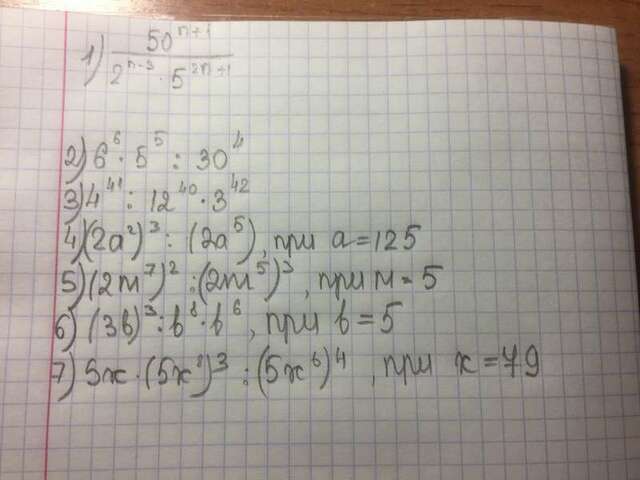 1) 50^(n+1) / (2^(n-3) · 5^(2n+1))
2) 6^6 · 5^5 : 30^4
3) 4^41 : 12^40 · 3^42
4) (2a^2)^3 : (2a^5), при a = 125
5) (2m^7)^2 : (2m^5)^3, при м = 5
6) (3b)^3 : b^8 · b^6, при b = 5
7) 5x · (5x^8)^3 : (5x^6)^4, при x = 79